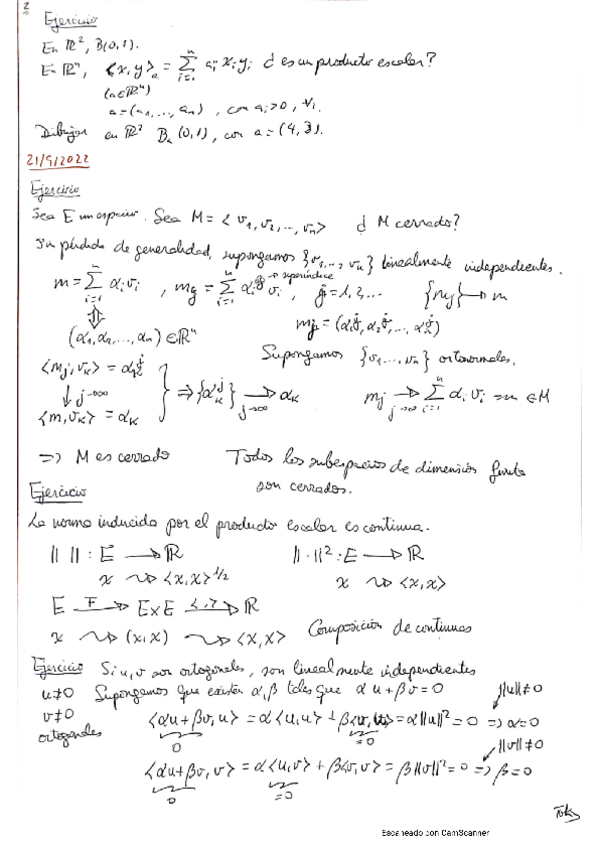 2
Ejercicio
En ℝ², B(0,1).
En ℝⁿ, <x,y>ₐ = Σᵢ₌₁ⁿ aᵢxᵢyᵢ ¿es un producto escalar?
(a∈ℝⁿ)
a=(a₁,...,aₙ), con aᵢ>0, ∀i.
Dibujar en ℝ² Bₐ(0,1), con a=(4,3).
21/9/2022
Ejercicio
Sea E un espacio. Sea M=<v₁,v₂,...,vₙ> ¿M cerrado?
Sin pérdida de generalidad, supongamos {v₁,...,vₙ} linealmente independientes.
m=Σᵢ₌₁ⁿ αᵢvᵢ, mⱼ=Σᵢ₌₁ⁿ αᵢʲvᵢ → superíndice, j=1,2,... {mⱼ}→m
⇕
(α₁,α₂,...,αₙ)∈ℝⁿ mⱼ=(α₁ʲ,α₂ʲ,...,αₙʲ)
Supongamos {v₁,...,vₙ} ortonormales.
<mⱼ,vₖ>=αₖʲ
↓j→∞ } ⇒{αₖʲ} →j→∞ αₖ mⱼ →j→∞ Σᵢ₌₁ⁿ αᵢvᵢ=m∈M
<m,vₖ>=αₖ
⇒ M es cerrado Todos los subespacios de dimensión finita
son cerrados.
Ejercicio
La norma inducida por el producto escalar es continua.
‖ ‖: E → ℝ ‖·‖²: E → ℝ
x ⇝ <x,x>^1/2 x ⇝ <x,x>
E →F E×E →<,> ℝ
x ⇝ (x,x) ⇝ <x,x> Composición de continuas
Ejercicio Si u,v son ortogonales, son linealmente independientes
u≠0 Supongamos que existen α,β tales que αu+βv=0 ‖u‖≠0
v≠0 <αu+βv,u>=α<u,u>+β<v,u>=α‖u‖²=0 ⇒α=0
ortogonales 0 =0 ‖v‖≠0
<αu+βv,v>=α<u,v>+β<v,v>=β‖v‖²=0 ⇒β=0
0 =0
Escaneado con CamScanner